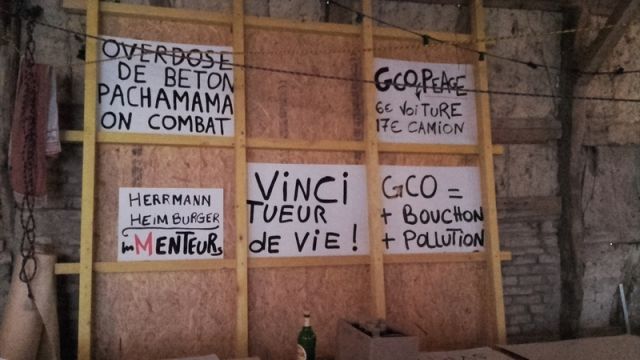 OVERDOSE
DE BETON
PACHAMAMA
ON COMBAT
GCO PEAGE
6€ VOITURE
17€ CAMION
HERRMANN
HEIMBURGER
MENTEURS
VINCI
TUEUR
de VIE !
GCO =
+ BOUCHON
+ POLLUTION